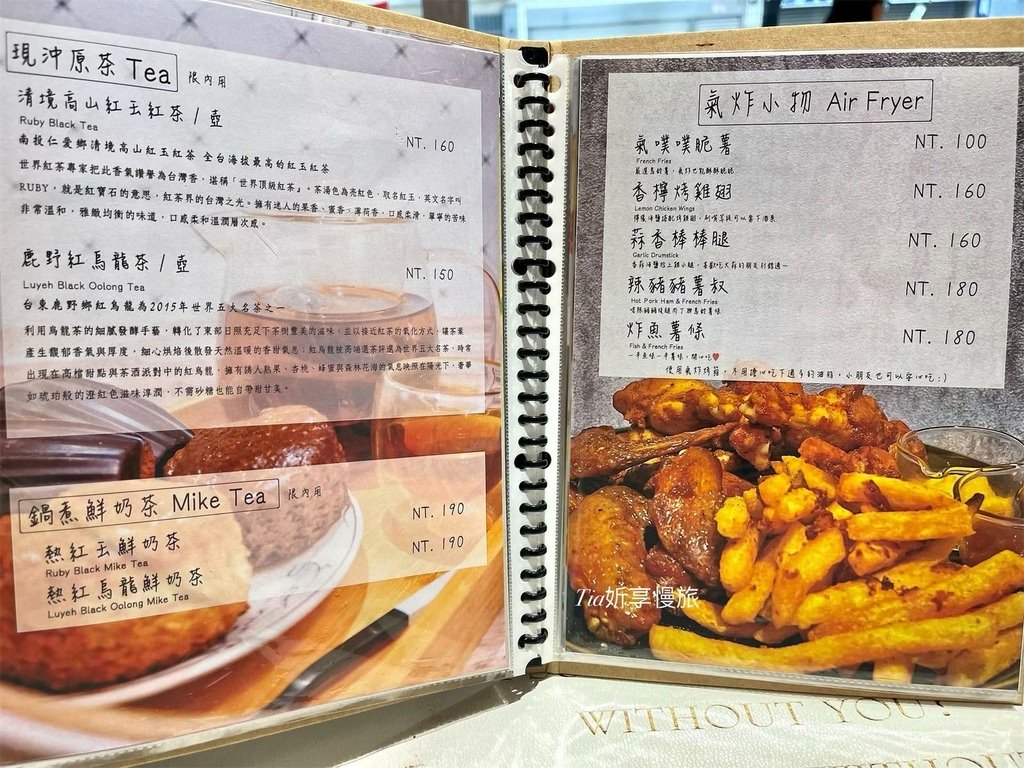 現沖原茶 Tea 限內用
清境高山紅玉紅茶 / 壺
Ruby Black Tea
NT. 160
南投仁愛鄉清境高山紅玉紅茶 全台海拔最高的紅玉紅茶
世界紅茶專家把此香氣讚譽為台灣香，堪稱「世界頂級紅茶』。茶湯色為亮紅色，取名紅玉，英文名字叫
RUBY，就是紅寶石的意思，紅茶界的台灣之光。擁有迷人的果香、蜜香、薄荷香，口感柔滑，單寧的苦味
非常溫和，雅緻均衡的味道，口感柔和溫潤層次感。
鹿野紅烏龍茶 / 壺
NT. 150
Luyeh Black Oolong Tea
台東鹿野鄉紅烏龍為2015年世界五大名茶之一
利用烏龍茶的細膩發酵手藝，轉化了東部日照充足下茶樹豐美的滋味，並以接近紅茶的氧化方式，讓茶葉
產生馥郁香氣與厚度，細心烘焙後散發天然溫暖的香甜氣息；紅烏龍被高端選茶評選為世界五大名茶，時常
出現在高檔甜點與茶酒派對中的紅烏龍，擁有誘人熟果、杏桃、蜂蜜與森林花海的氣息映照在陽光下，奢華
如琥珀般的澄紅色滋味淳潤，不需砂糖也能自帶甜甘美。
鍋煮鮮奶茶 Mike Tea 限內用
熱紅玉鮮奶茶
NT. 190
Ruby Black Mike Tea
熱紅烏龍鮮奶茶
NT. 190
Luyeh Black Oolong Mike Tea
氣炸小物 Air Fryer
氣噗噗脆薯
NT. 100
French Fries
香檸烤雞翅
NT. 160
Lemon Chicken Wings
蒜香棒棒腿
NT. 160
Garlic Drumstick
辣豬豬薯叔
NT. 180
Hot Pork Ham & French Fries
炸魚薯條
NT. 180
Fish & French Fries
一半魚味一半薯味，開心吃❤
使用氣炸烤箱，不用擔心吃下過多的油脂，小朋友也可以安心吃:)
Tia妡享慢旅
WITHOUT YOU?